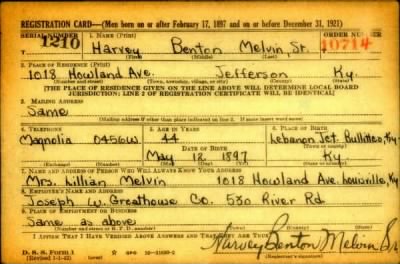 REGISTRATION CARD—(Men born on or after February 17, 1897 and on or before December 31, 1921)
SERIAL NUMBER 1. NAME (Print) ORDER NUMBER
1210 Harvey Benton Melvin, Sr. 10714
(First) (Middle) (Last)
2. PLACE OF RESIDENCE (Print)
1018 Howland Ave. Jefferson Ky.
(Number and street) (Town, township, village, or city) (County) (State)
[THE PLACE OF RESIDENCE GIVEN ON THE LINE ABOVE WILL DETERMINE LOCAL BOARD
JURISDICTION; LINE 2 OF REGISTRATION CERTIFICATE WILL BE IDENTICAL]
3. MAILING ADDRESS
Same
[Mailing address if other than place indicated on line 2. If same insert word same]
4. TELEPHONE 5. AGE IN YEARS 6. PLACE OF BIRTH
Magnolia 0456W 44 Lebanon Jct. Bullitt Co, Ky.
DATE OF BIRTH (Town or county)
May 12, 1897 Ky.
(Exchange) (Number) (Mo.) (Day) (Yr.) (State or country)
7. NAME AND ADDRESS OF PERSON WHO WILL ALWAYS KNOW YOUR ADDRESS
Mrs. Lillian Melvin 1018 Howland Ave. Louisville, Ky
8. EMPLOYER'S NAME AND ADDRESS
Joseph W. Greathouse Co. 530 River Rd
9. PLACE OF EMPLOYMENT OR BUSINESS
Same as above
(Number and street or R. F. D. number) (Town) (County) (State)
I AFFIRM THAT I HAVE VERIFIED ABOVE ANSWERS AND THAT THEY ARE TRUE.
D. S. S. Form 1
(Revised 1-1-42) GPO (over) Harvey Benton Melvin Sr